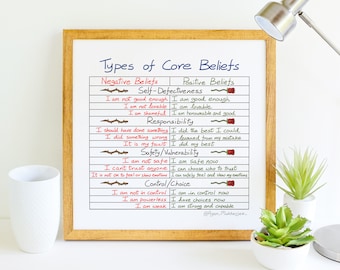 Types of Core Beliefs
Negative Beliefs Positive Beliefs
Self-Defectiveness
I am not good enough I am good enough
I am not lovable I am lovable
I am shameful I am honourable and good
Responsibility
I should have done something I did the best I could
I did something wrong I learned from my mistake
It is my fault I did my best
Safety/Vulnerability
I am not safe I am safe now
I can't trust anyone I can choose who to trust
It is not ok to feel or show emotions I can safely feel and show my emotions
Control/Choice
I am not in control I am in control now
I am powerless I have choices now
I am weak I am strong and capable